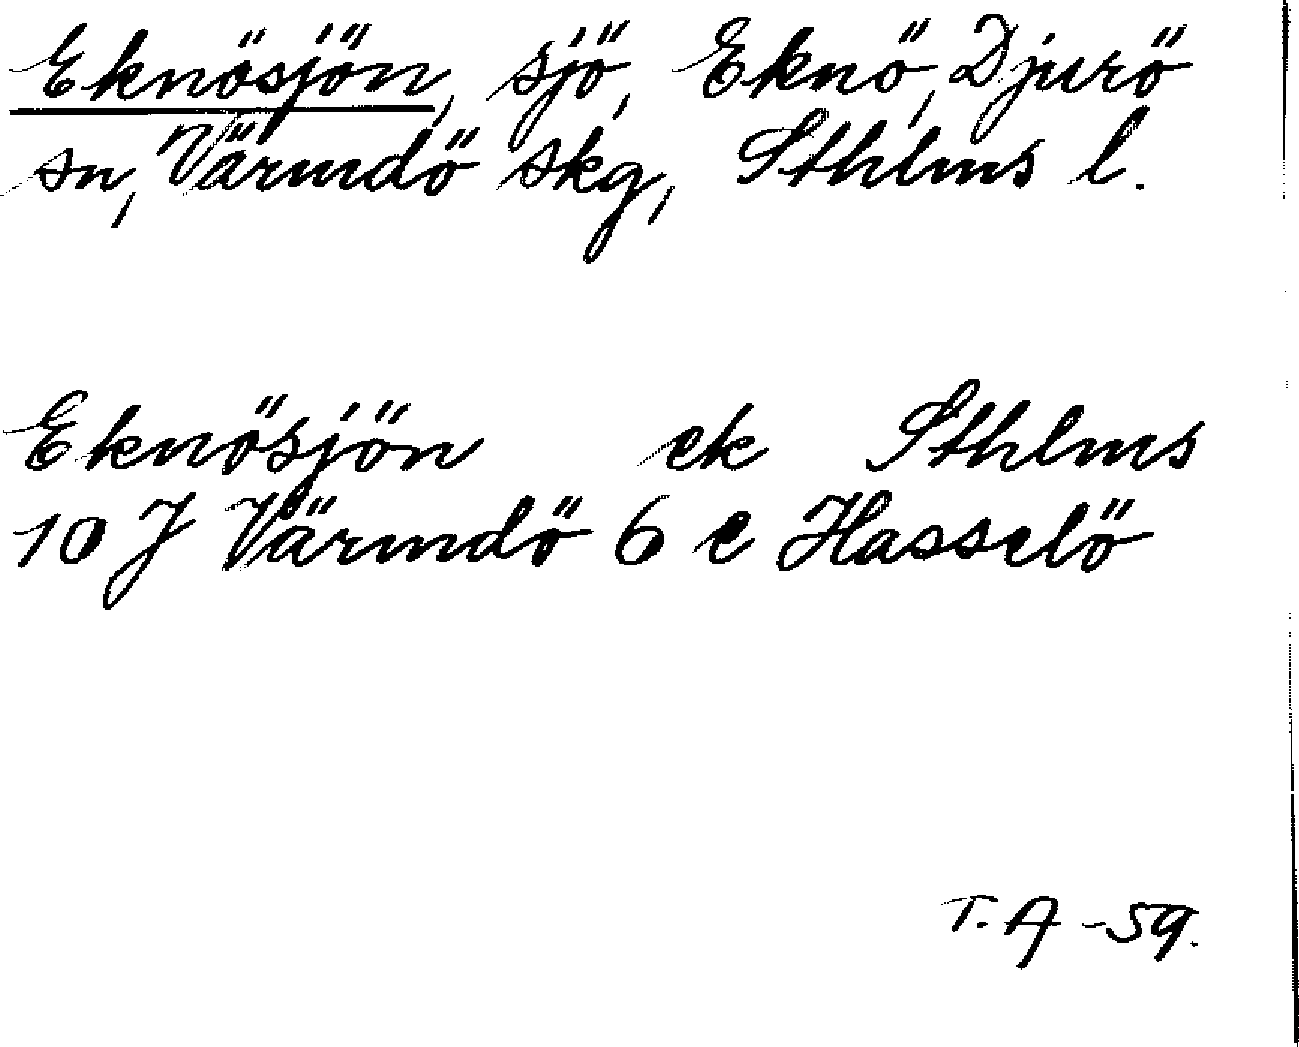 Eknösjön, sjö, Eknö, Djurö
sn, Värmdö skg, Sthlms l.
Eknösjön ek Sthlms
10 J Värmdö 6 e Hasselö
T. A -59.